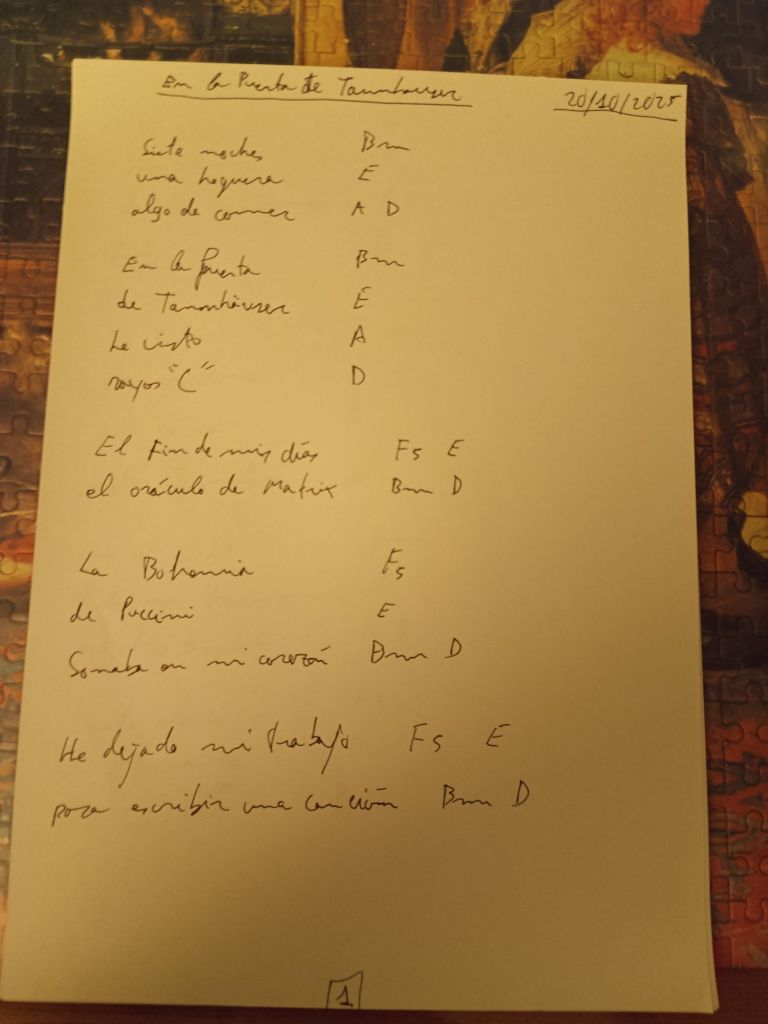 En la Puerta de Tannhauser 20/10/2025
Siete noches Bm
una hoguera E
algo de comer A D
En la puerta Bm
de Tannhäuser E
he visto A
rayos "C" D
El Fin de mis días F5 E
el oráculo de Matrix Bm D
La Bohemia F5
de Puccini E
Sonaba en mi corazón Bm D
He dejado mi trabajo F5 E
para escribir una canción Bm D
1